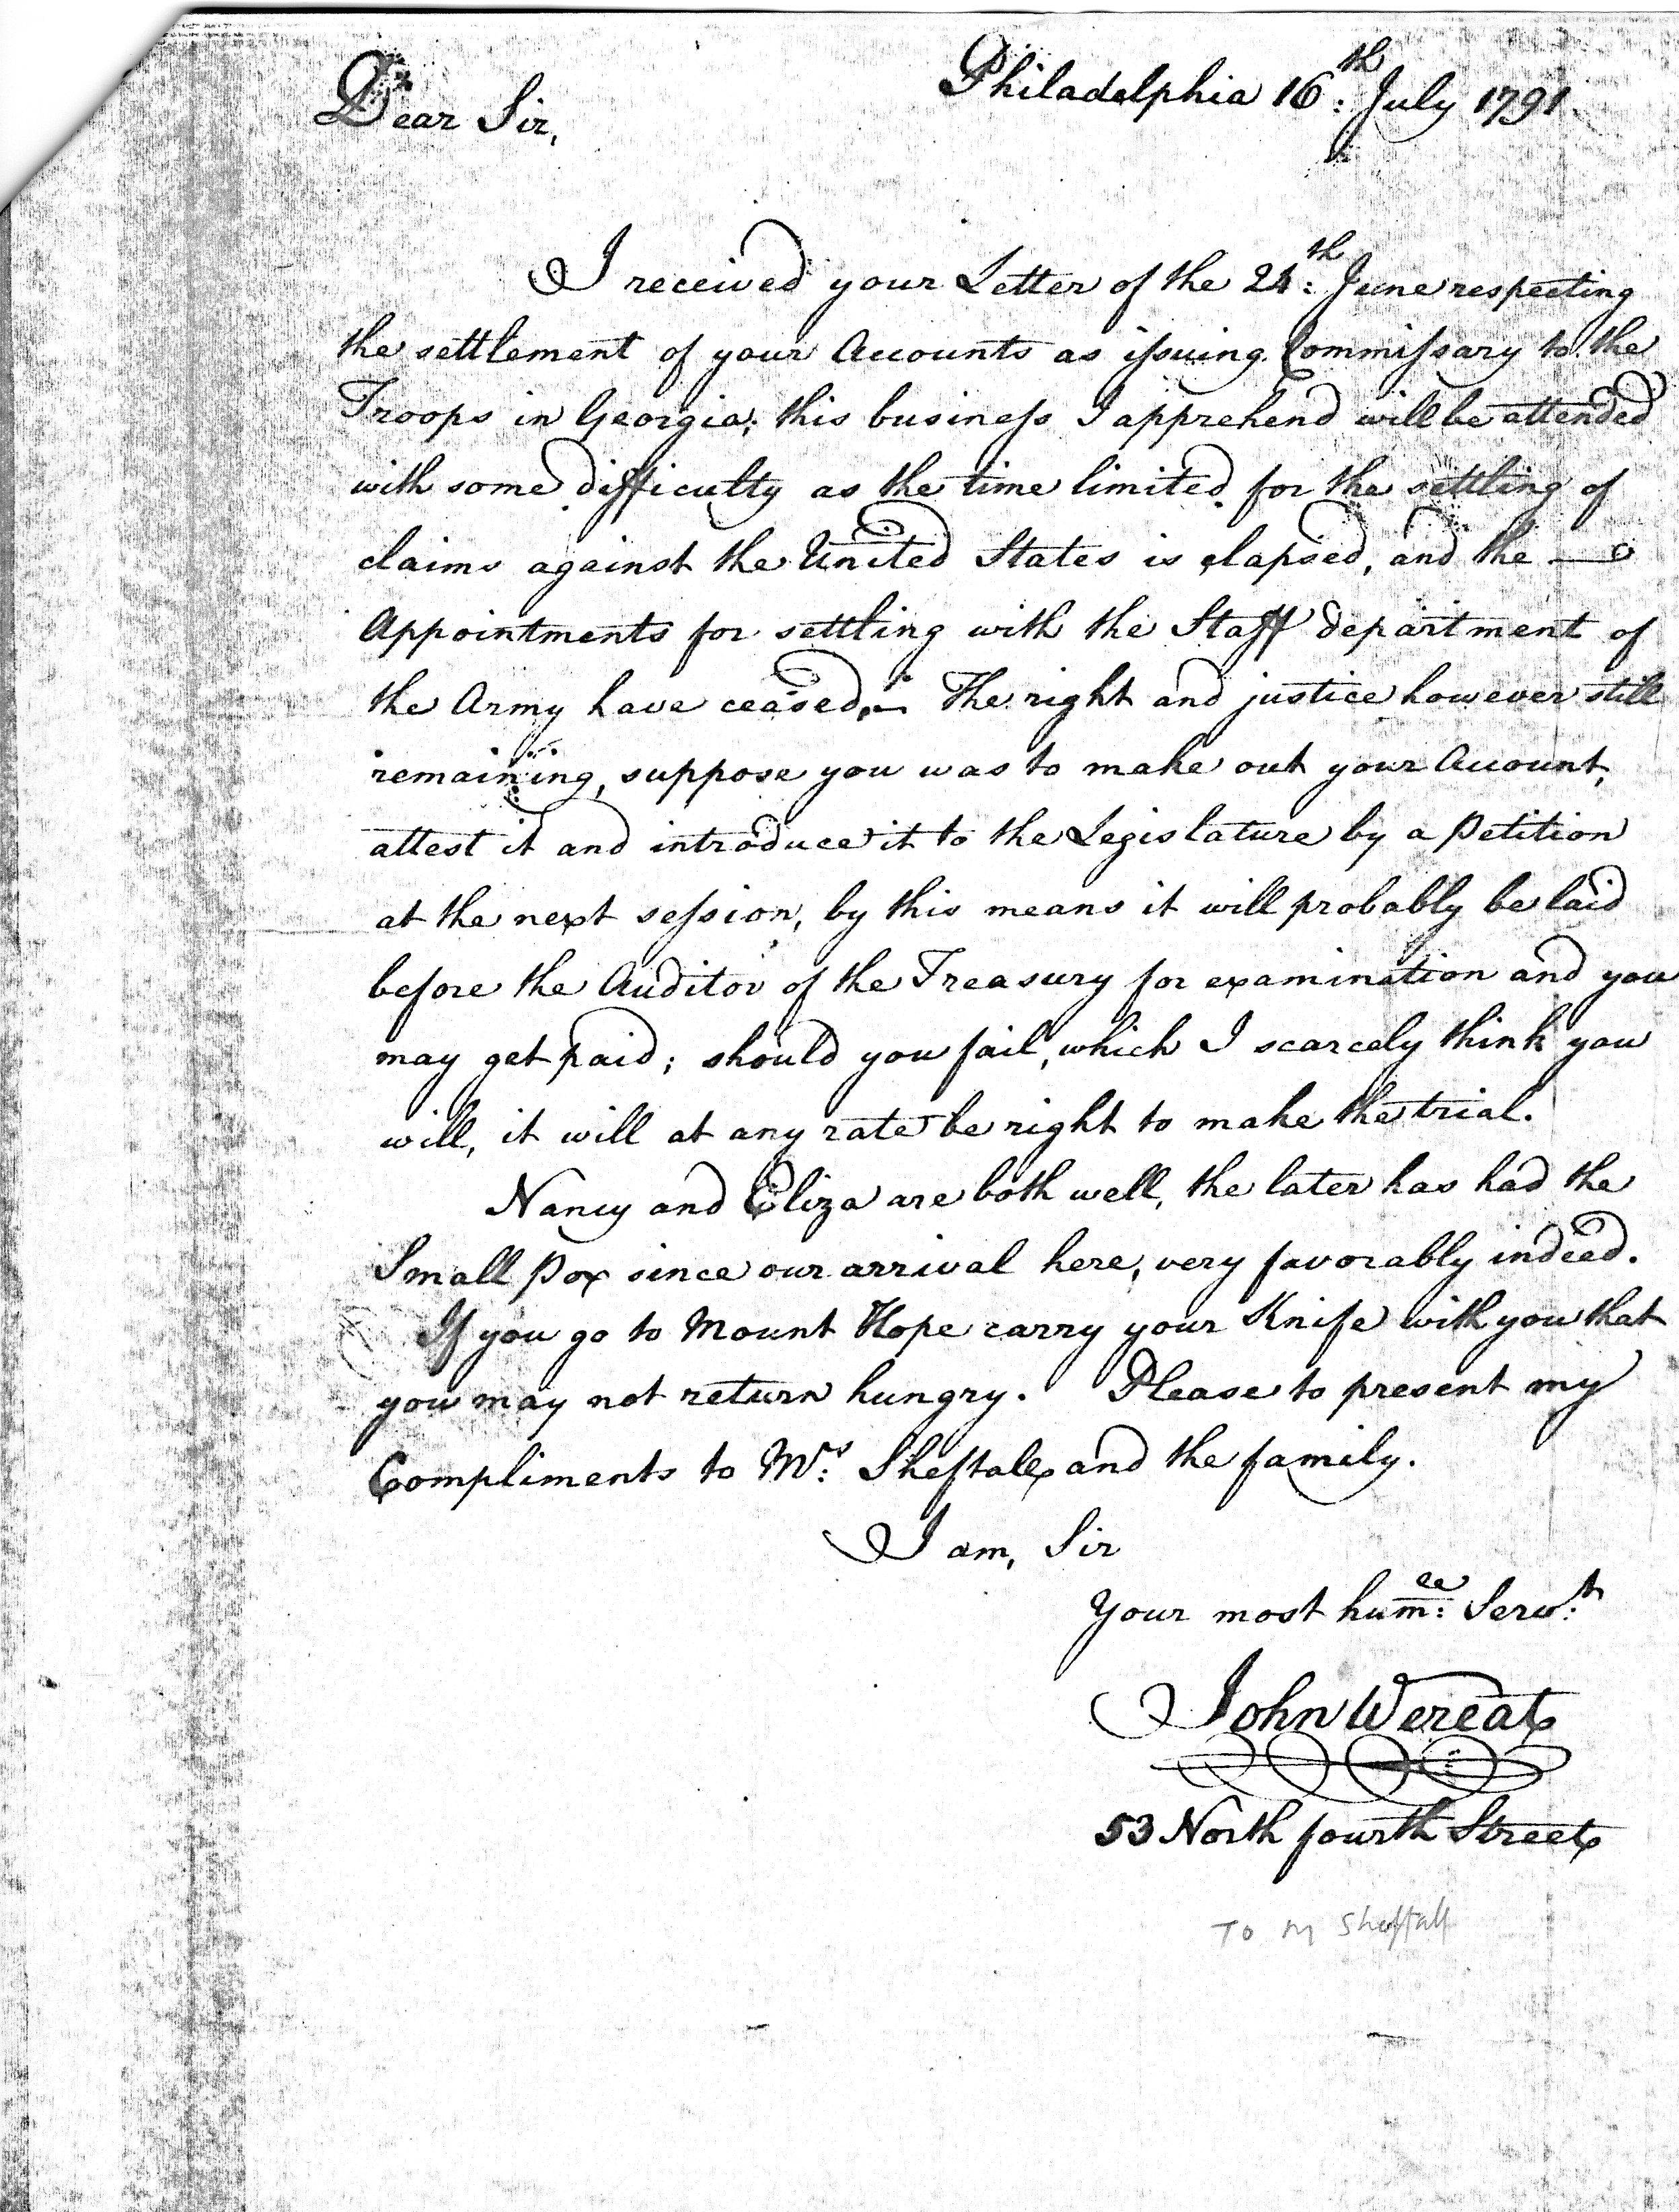 Philadelphia 16th: July 1791.
Dear Sir,
I received your Letter of the 24th: June respecting
the settlement of your Accounts as iſsuing Commiſsary to the
Troops in Georgia; this busineſs I apprehend will be attended
with some difficulty as the time limited for the settling of
claims against the United States is elapsed, and the —
Appointments for settling with the Staff department of
the Army have ceased.— The right and justice however still
remaining, suppose you was to make out your Account,
attest it and introduce it to the Legislature by a Petition
at the next seſsion, by this means it will probably be laid
before the Auditor of the Treasury for examination and you
may get paid; should you fail, which I scarcely think you
will, it will at any rate be right to make the trial.
Nancy and Eliza are both well, the later has had the
Small Pox since our arrival here, very favorably indeed.
If you go to Mount Hope carry your Knife with you that
you may not return hungry. Please to present my
Compliments to Mrs: Sheftall and the family.
I am, Sir
Your most humee: Servt:
John Wereat
53 North fourth Street
To M Sheftall